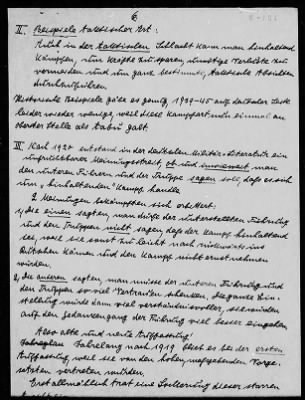 6
II. Beispiele taktischer Art:
Auch in der taktischen Schlacht kann man hinhaltend
kämpfen, um Kräfte zu sparen, unnötige Verluste zu
vermeiden und um ganz bestimmte, taktische Absichten
durchzuführen.
Historische Beispiele gäbe es genug, 1939-45 auf deutscher Seite
leider wieder weniger, weil diese Kampfart nun einmal an
oberster Stelle als tabu galt.
III. Nach 1920 entstand in der deutschen Militär-Literatur ein
Meinungsstreit, ob und inwieweit man
den unteren Führern und der Truppe sagen soll, daß es sich
um "hinhaltenden" Kampf handle.
2 Meinungen bekämpften sich erbittert:
1.) Die einen sagten, man dürfe der unterstellten Führung
und den Truppen nicht sagen, daß der Kampf hinhaltend
sei, weil sie sonst zu leicht nach rückwärts
könnten und den Kampf nicht ernst nehmen
würden.
2.) Die anderen sagten, man müsse der unteren Führung und
den Truppen so viel Vertrauen schenken, die ganze Ein-
stellung würde dann viel verständnisvoller, sie würden
auf den Gedankengang der Führung viel besser eingehen.
Also alte und neue Auffassung!
Jahrelang nach 1919 blieb es bei der ersten
Auffassung, weil sie von den hohen, maßgebenden Vorge-
setzten vertreten wurde.
Erst allmählich trat eine Lockerung dieser starren